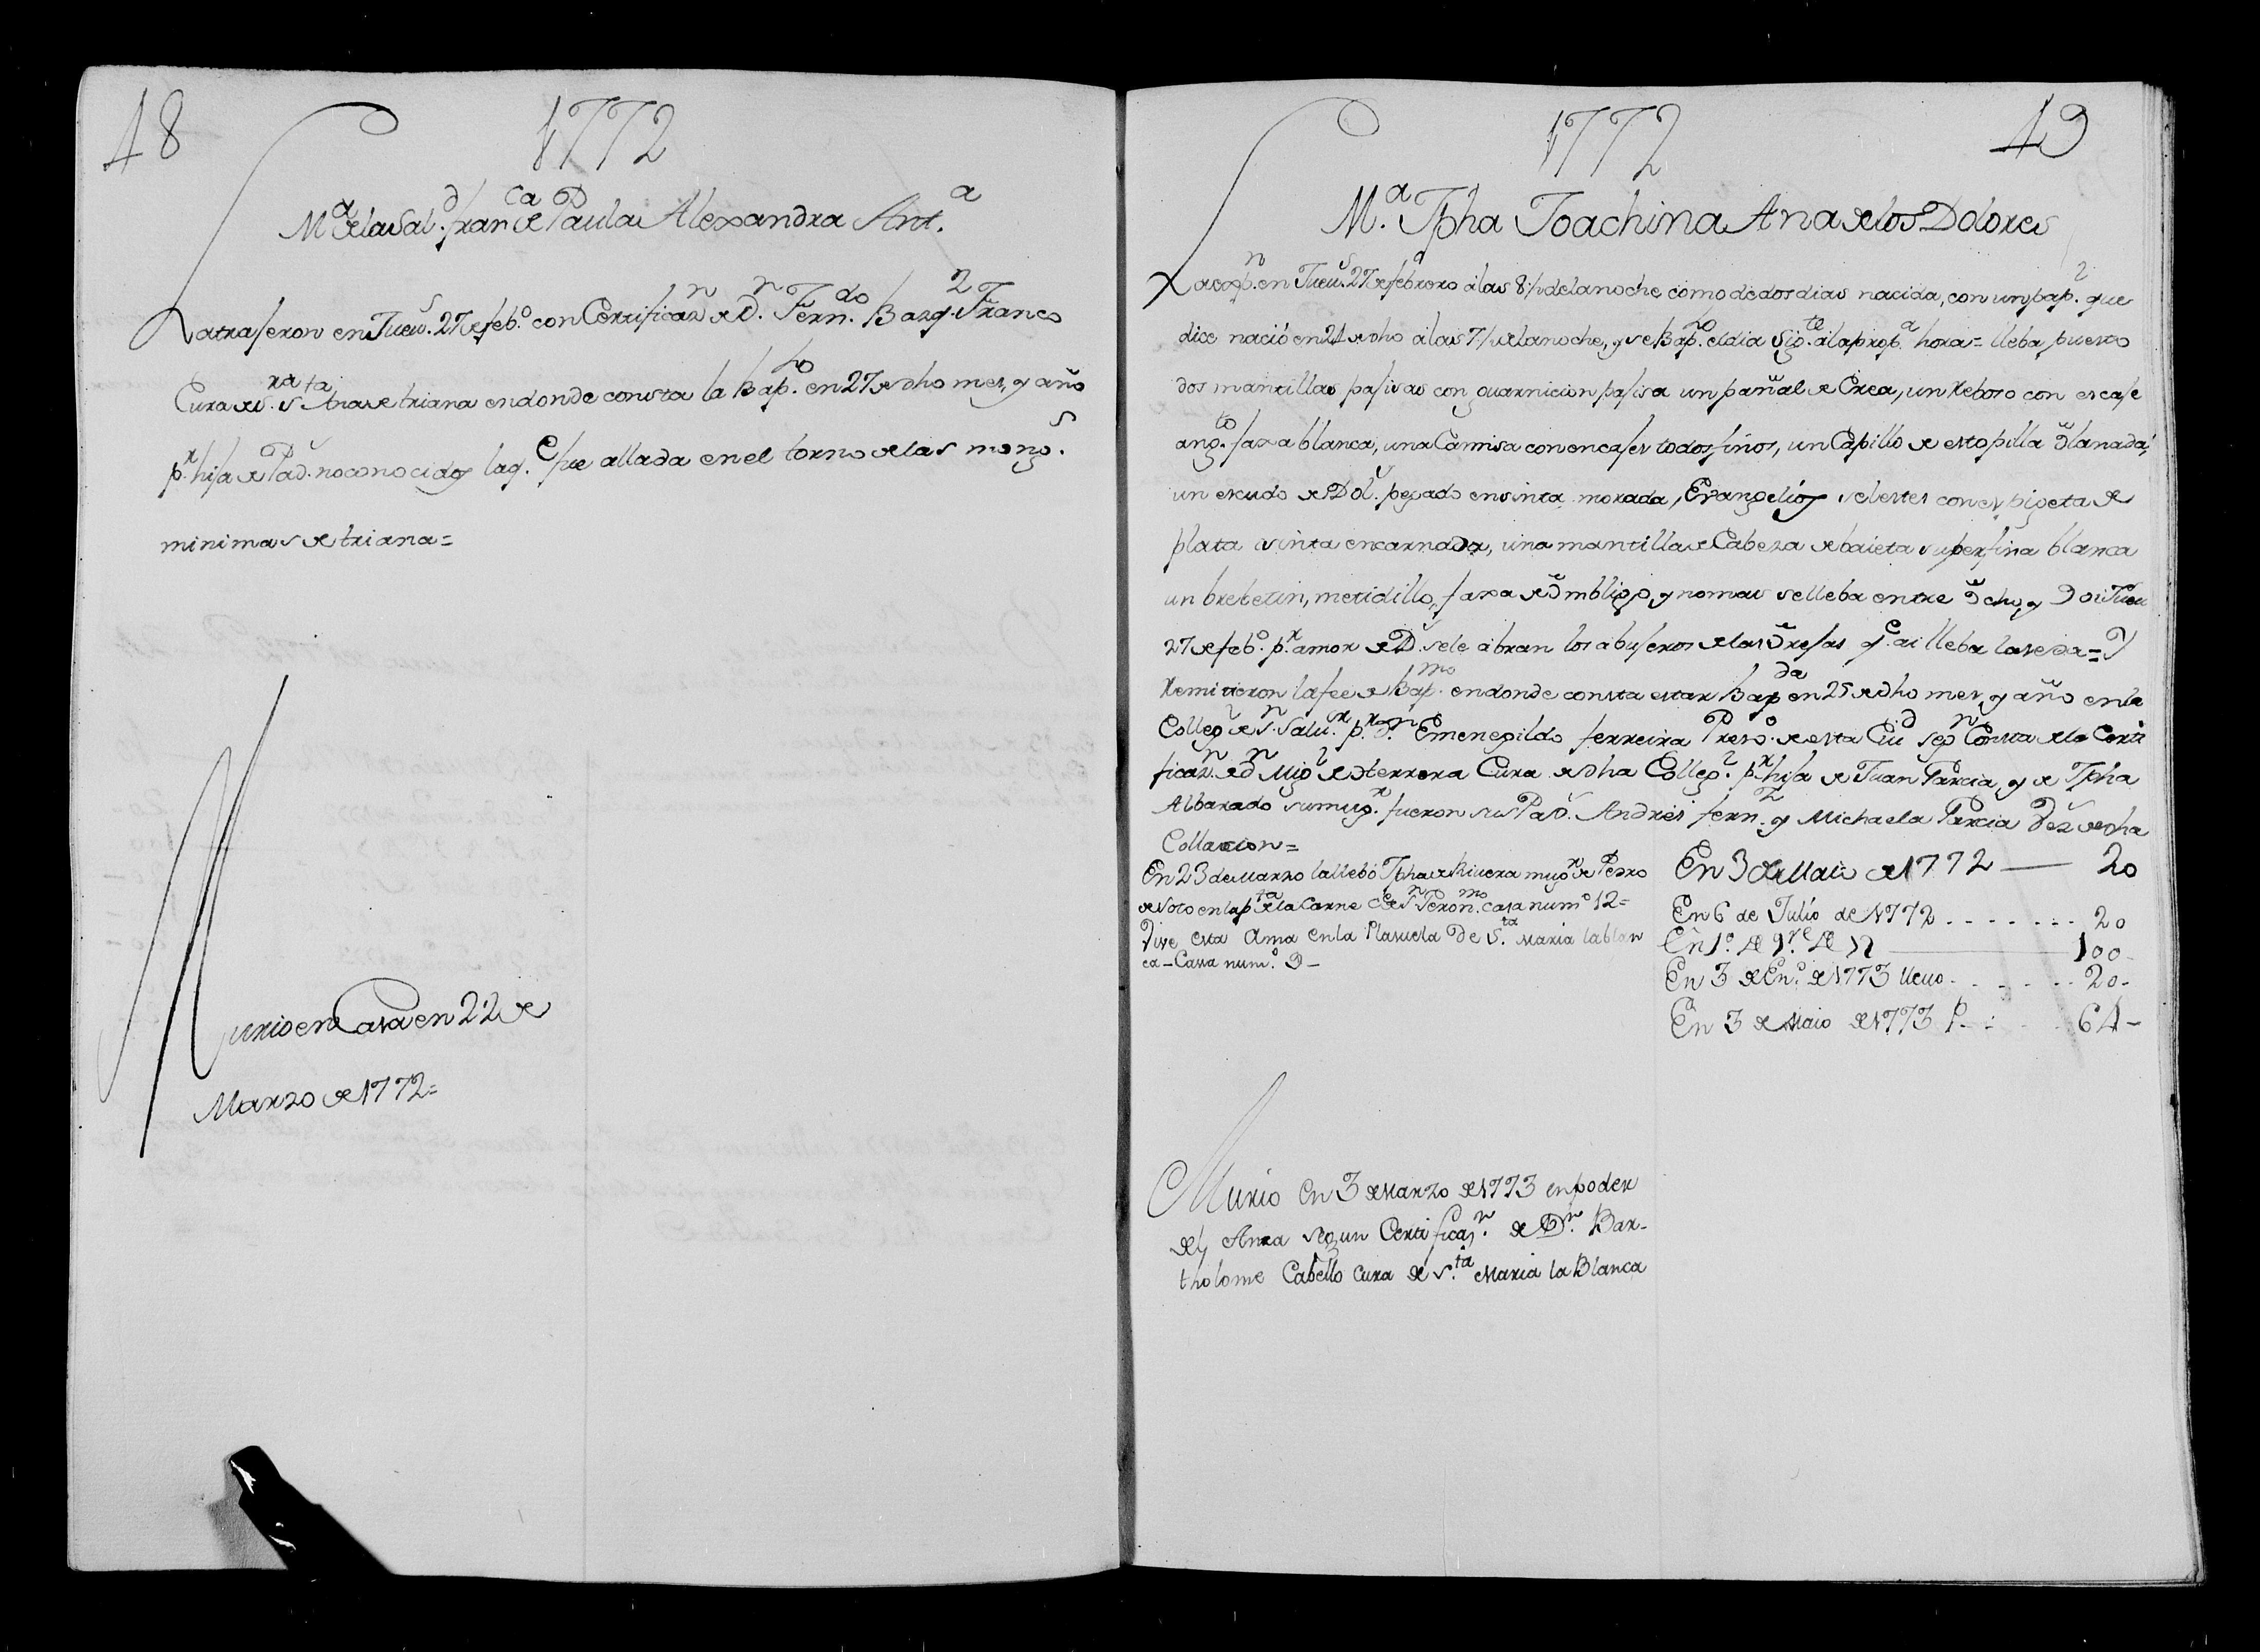 48
1772
M.ª de la Sal.d fran.ca de Paula Alexandra Ant.ª
La traferon en Juev.s 27 de feb.º con Certificaz.n de D.n Fern.do Bazq.z Franco
Cura de S.ra S.ta Ana de triana en donde consta la Bap.º en 27 de dho mes, y año
p.r hifa de Pad.s no conocidos la q.e fue allada en el torno de las mong.s
minimas de triana=
Murio en Casa en 22 de
Marzo de 1772=
1772
49
M.ª Jpha Joachina Ana de los Dolores
en Juev.s 27 de febrero a las 8 1/2 de la noche como de dos dias nacida, con un pap.l que
dice nació en 24 de dho a las 7 1/2 de la noche, y se Bap.º el dia Sig.te a la prop.ª hora= lleba puesto
dos mantillas pafisas con guarnicion pafisa un pañal de Crea, un Rebozo con encafe
ang.to faxa blanca, una Camisa con encafes todos finos, un Capillo de estopilla
un escudo de Dol.s pegado en sinta morada, Evangelios selestes con espigeta de
plata sinta encarnada, una mantilla de Cabeza de baieta superfina blanca
un brebetin, metidillo, faxa de Ombligo, y no mas se lleba entre ocho, y Juev
27 de feb.º p.r amor de D.s se le abran los abuferos de las Orefas q.e ai lleba la seda= Y
Remitieron la fee de Bap.mo en donde consta estar Bap.da en 25 de dho mes, y año en la
Colleg.l de S.n Salv.r p.r d.n Emenegildo ferreira Presv.º de esta Ciu.d seg.n Consta de la Certi
ficaz.n de d.n Mig.l de Herrera Cura de dha Colleg.l p.r hifa de Juan Garcia, y de Jpha
Albarado su mug.r fueron sus Pad.s Andres fern.z y Michaela Garcia de dha
Collacion=
En 23 de Marzo la llebó Jpha de Rivera mug.r de Pedro
de Soto en la p.ta de la Carne C.e de S.n Geron.mo casa num.º 12=
Vive esta Ama en la Plasuela De S.ta Maria la blan
ca - Casa num.º 9 -
En 3 de Maio de 1772 — 20
En 6 de Julio de 1772 . . . . . . . 20
En 1.º de 9.re de 72 — 100
En 3 de En.º de 1773 . . . . . . 20-
En 3 de Maio de 1773 P. . . . . 64-
Murio en 3 de Marzo de 1773 en poder
del Ama segun Certificaz.n de D.n Bar-
tholome Cabello Cura de S.ta Maria la Blanca